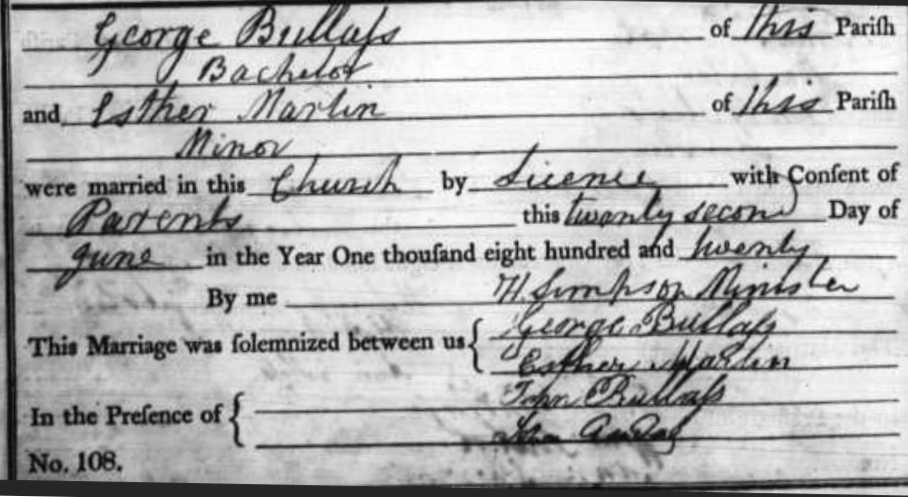 George Bullaſs of this Pariſh
Bachelor
and Esther Martin of this Pariſh
Minor
were married in this Church by Licence with Conſent of
Parents this twenty second Day of
June in the Year One thouſand eight hundred and twenty
By me H. Simpson Minister
This Marriage was ſolemnized between us { George Bullaſs
Esther Martin
In the Preſence of { John Bullaſs
No. 108.